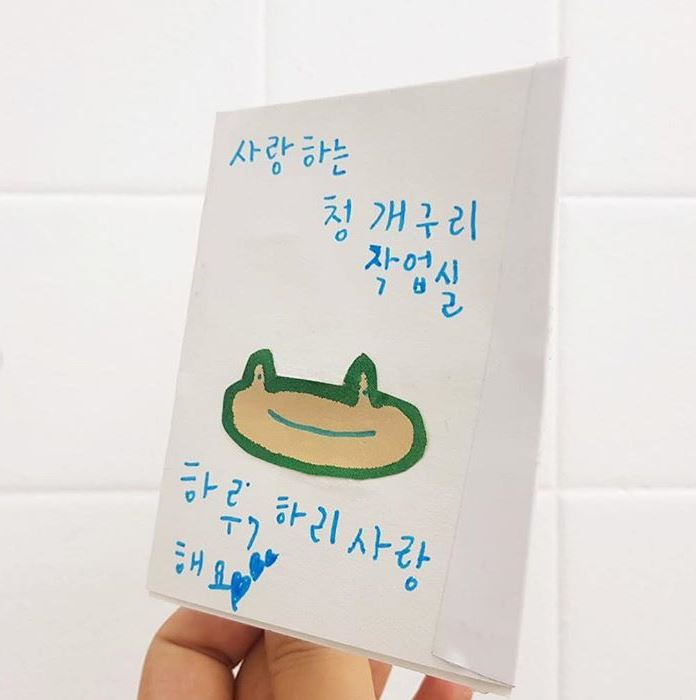 사랑하는
청개구리
작업실
하루, 하리 사랑
해요